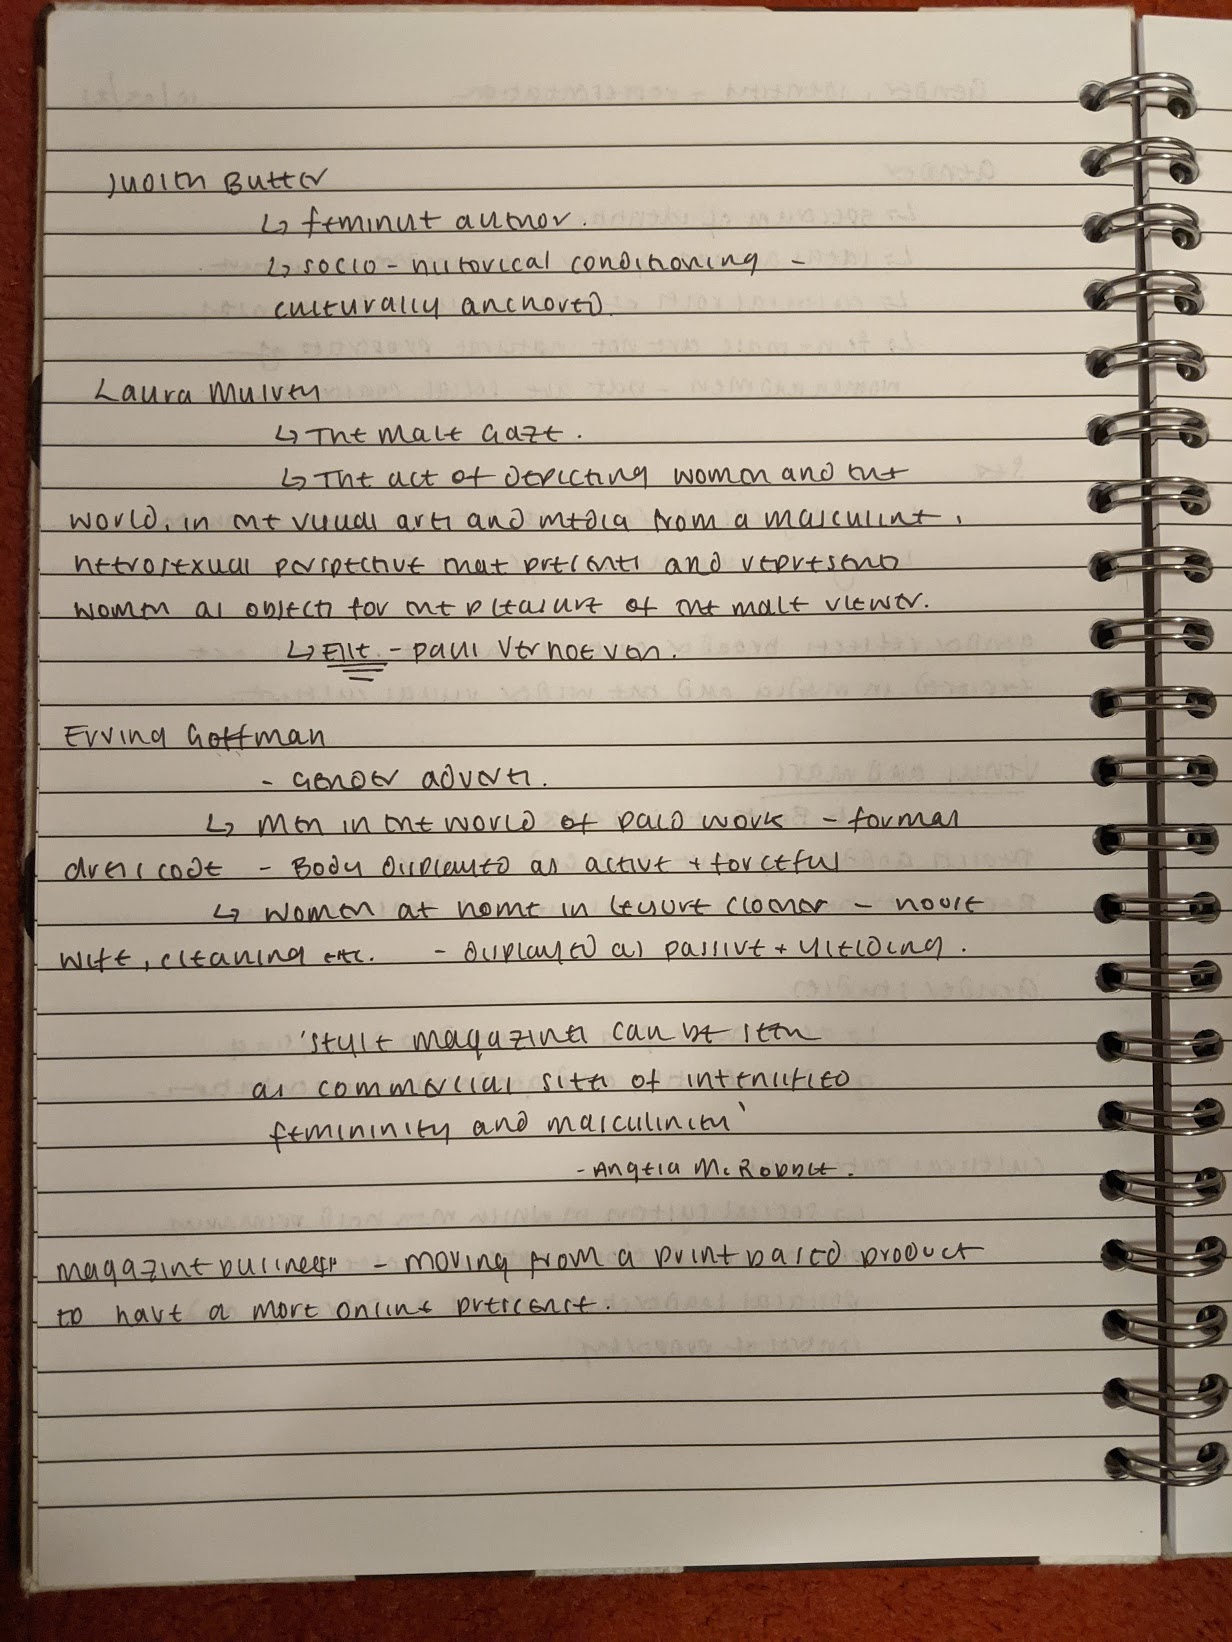 Judith Butler
↳ feminist author.
↳ socio-historical conditioning -
culturally anchored.
Laura Mulvey
↳ The male gaze.
↳ The act of depicting women and the
world, in the visual arts and media from a masculine,
hetrosexual perspective that presents and represents
women as objects for the pleasure of the male viewer.
↳ Elle - Paul Verhoeven.
Erving Goffman
- Gender adverts.
↳ Men in the world of paid work - formal
dress code - Body displayed as active + forceful
↳ women at home in leisure clothes - house
wife, cleaning etc. - displayed as passive + yielding.
'style magazines can be seen
as commercial sites of intensified
femininity and masculinity'
- Angela McRobbie.
magazine business - moving from a print based product
to have a more online presence.